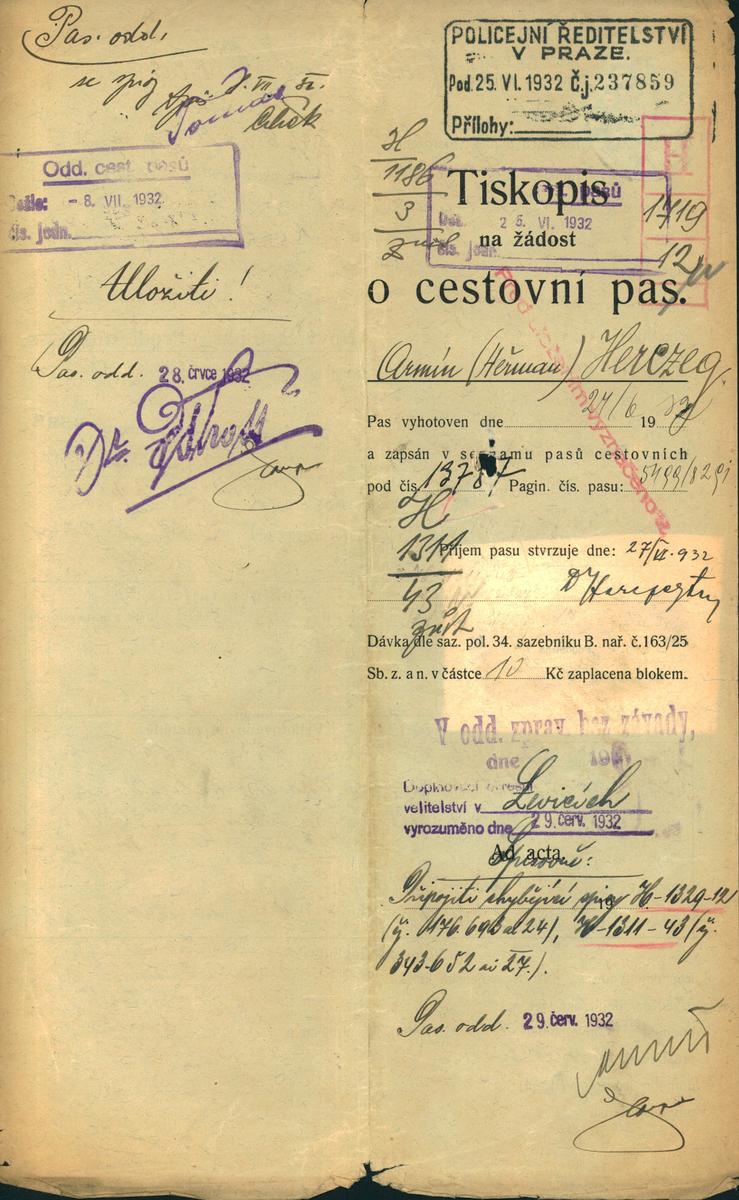 Pas. odd.
se zpěv
Odd. cest. pasů
Došlo: - 8. VII. 1932
čís. jedn.
Uložiti!
Pas. odd. 28. července 1932
Dr.
POLICEJNÍ ŘEDITELSTVÍ
V PRAZE.
Pod. 25. VI. 1932 Č.j. 237859
Přílohy:
H
1186
3
Tiskopis
25. VI. 1932
1719
12
na žádost
o cestovní pas.
Armín (Heřman) Herczeg.
Pas vyhotoven dne 27/6 1932
a zapsán v seznamu pasů cestovních
pod čís. 13787 Pagin. čís. pasu: 5499/8291
H
1311
43
Příjem pasu stvrzuje dne: 27/VI. 932
Dávka dle saz. pol. 34. sazebníku B. nař. č. 163/25
Sb. z. a n. v částce 10 Kč zaplacena blokem.
V odd. zprav. bez závady,
dne 193
Doplňovací okresní
velitelství v Levicích
vyrozuměno dne 29. červ. 1932
Ad acta.
Spisovně:
Připojiti chybějící spisy H-1329-12
(čj. 176.692 ai 24), H-1311-43 (čj.
343.652 ai 27.).
Pas. odd. 29. červ. 1932